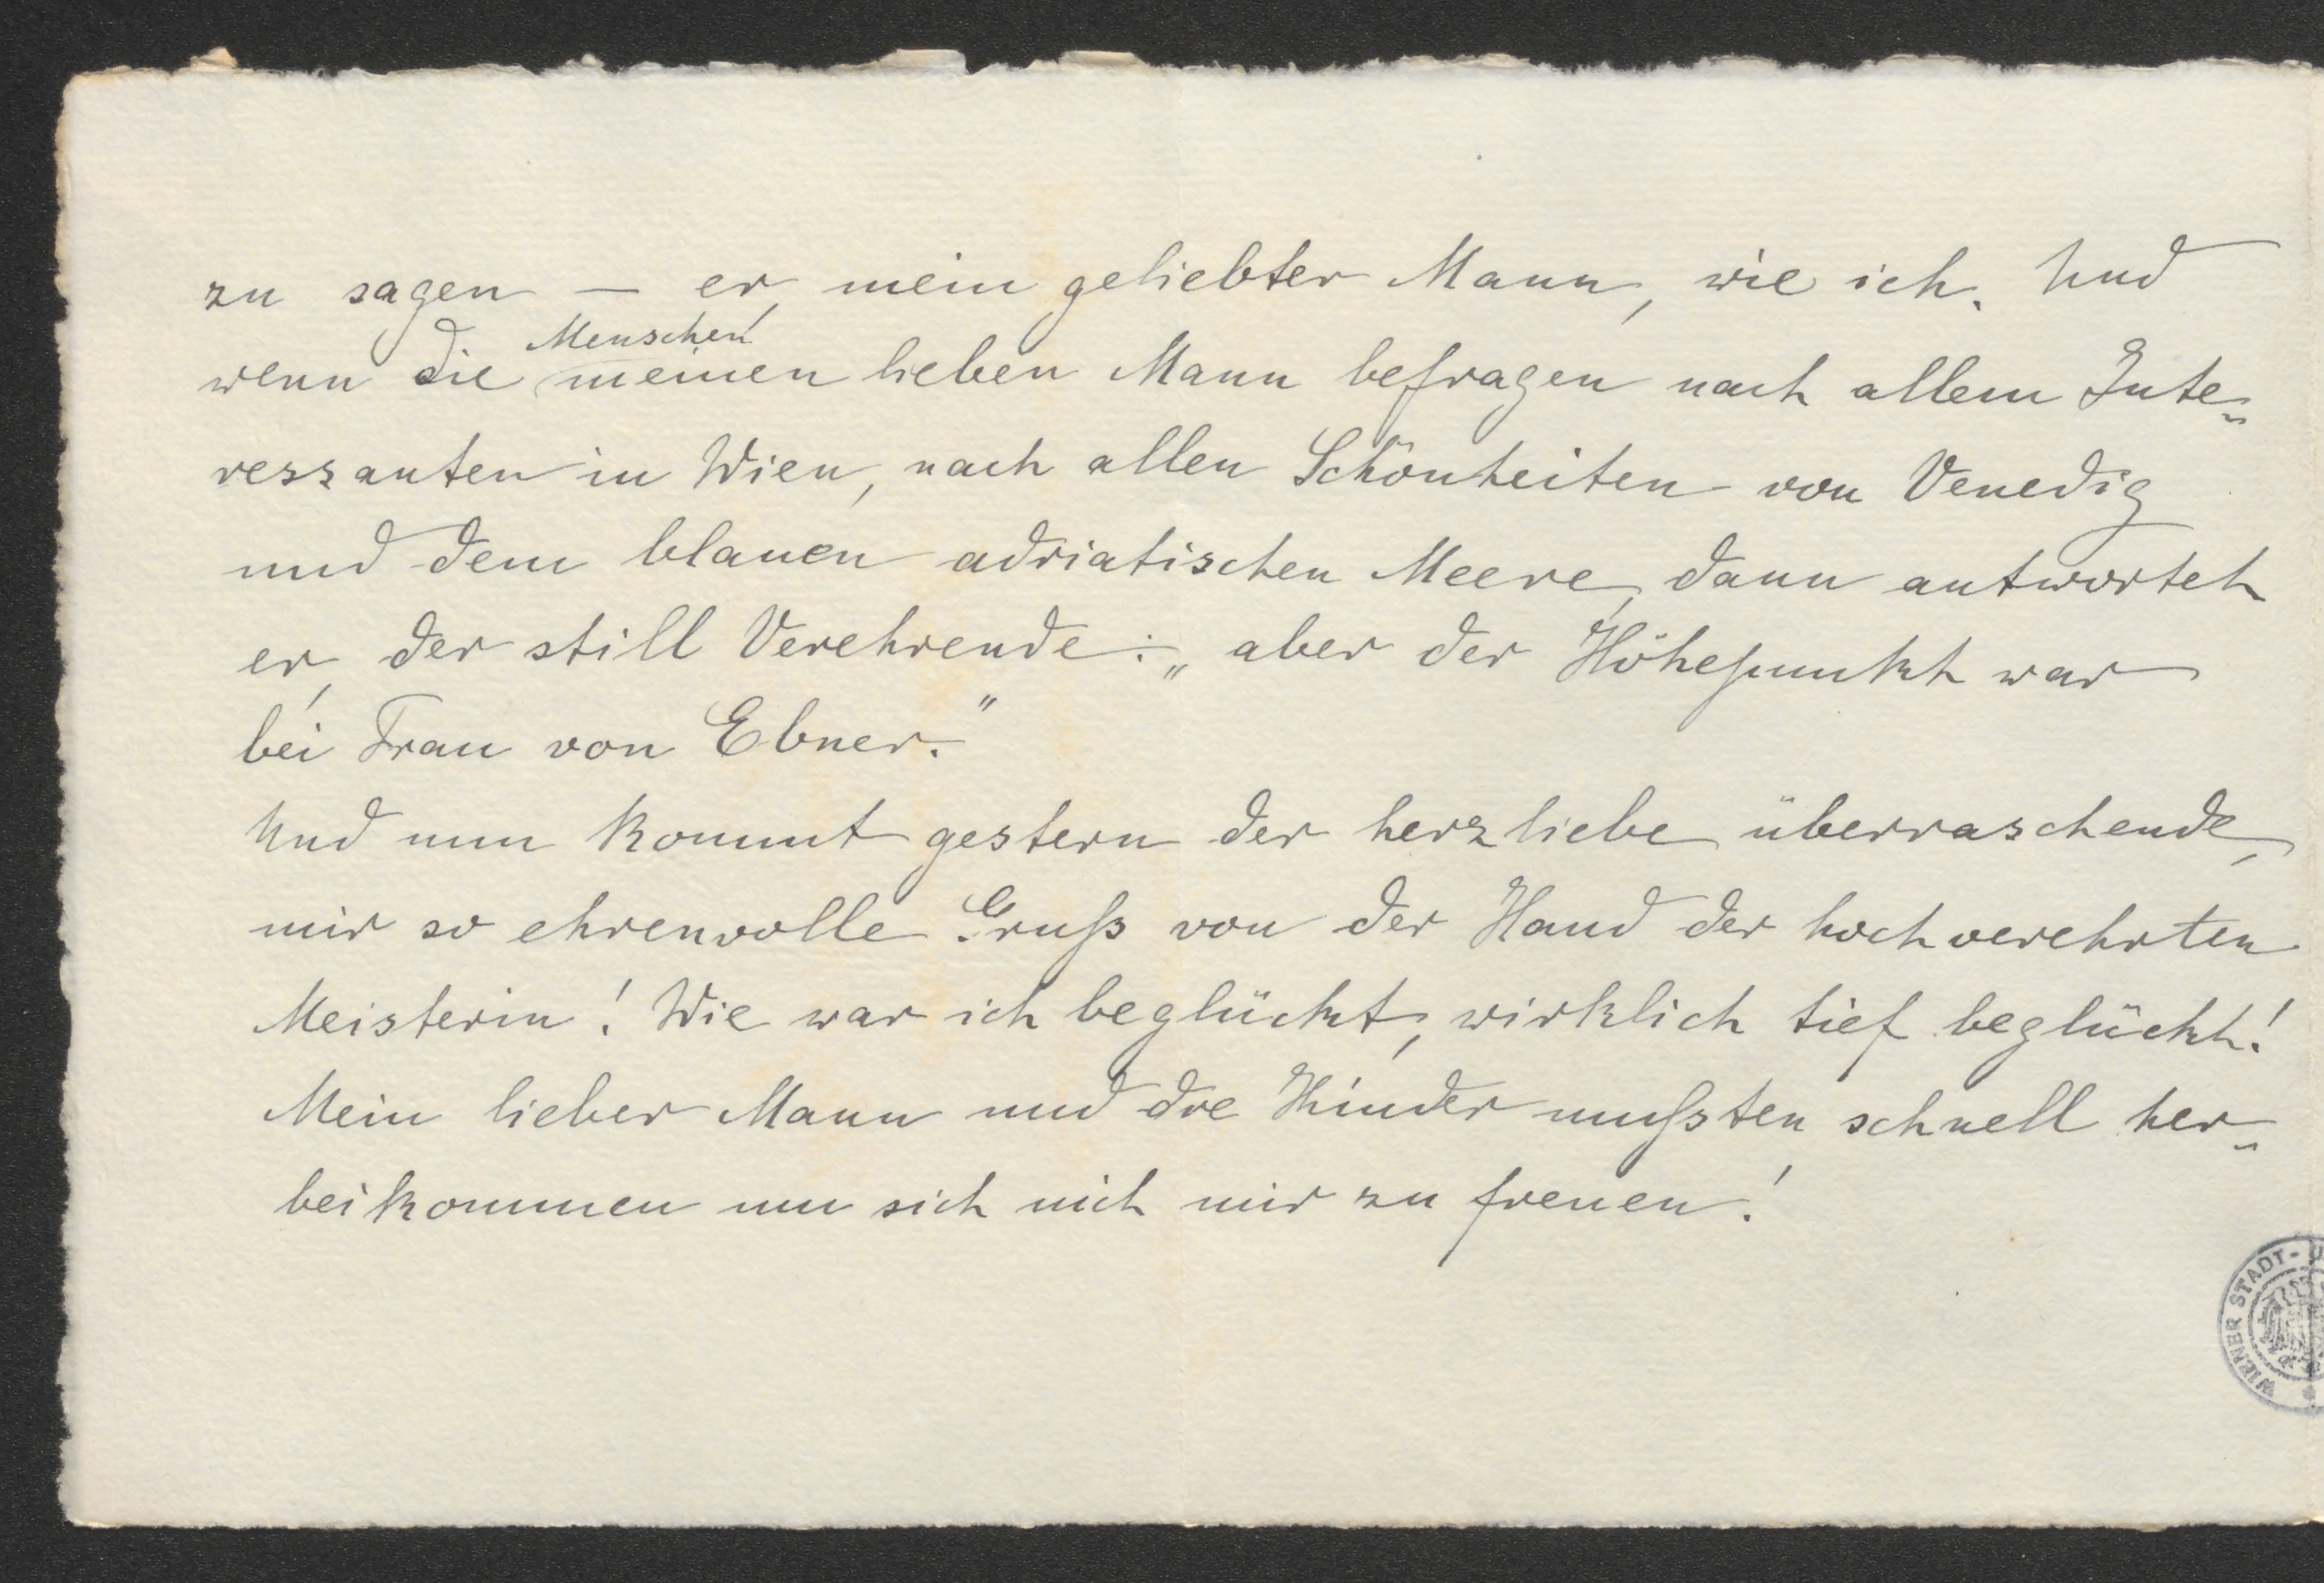 zu sagen — er, mein geliebter Mann, wie ich. Und
Menschen
wenn die meinen lieben Mann befragen nach allem Inte-
ressanten in Wien, nach allen Schönheiten von Venedig
und dem blauen adriatischen Meere, dann antwortet
er, der still Verehrende: „aber der Höhepunkt war
bei Frau von Ebner."
Und nun kommt gestern der herzliebe überraschende,
mir so ehrenvolle Gruß von der Hand der hochverehrten
Meisterin! Wie war ich beglückt, wirklich tief beglückt!
Mein lieber Mann und die Kinder mußten schnell her-
beikommen um sich mit mir zu freuen!
WIENER STADT-